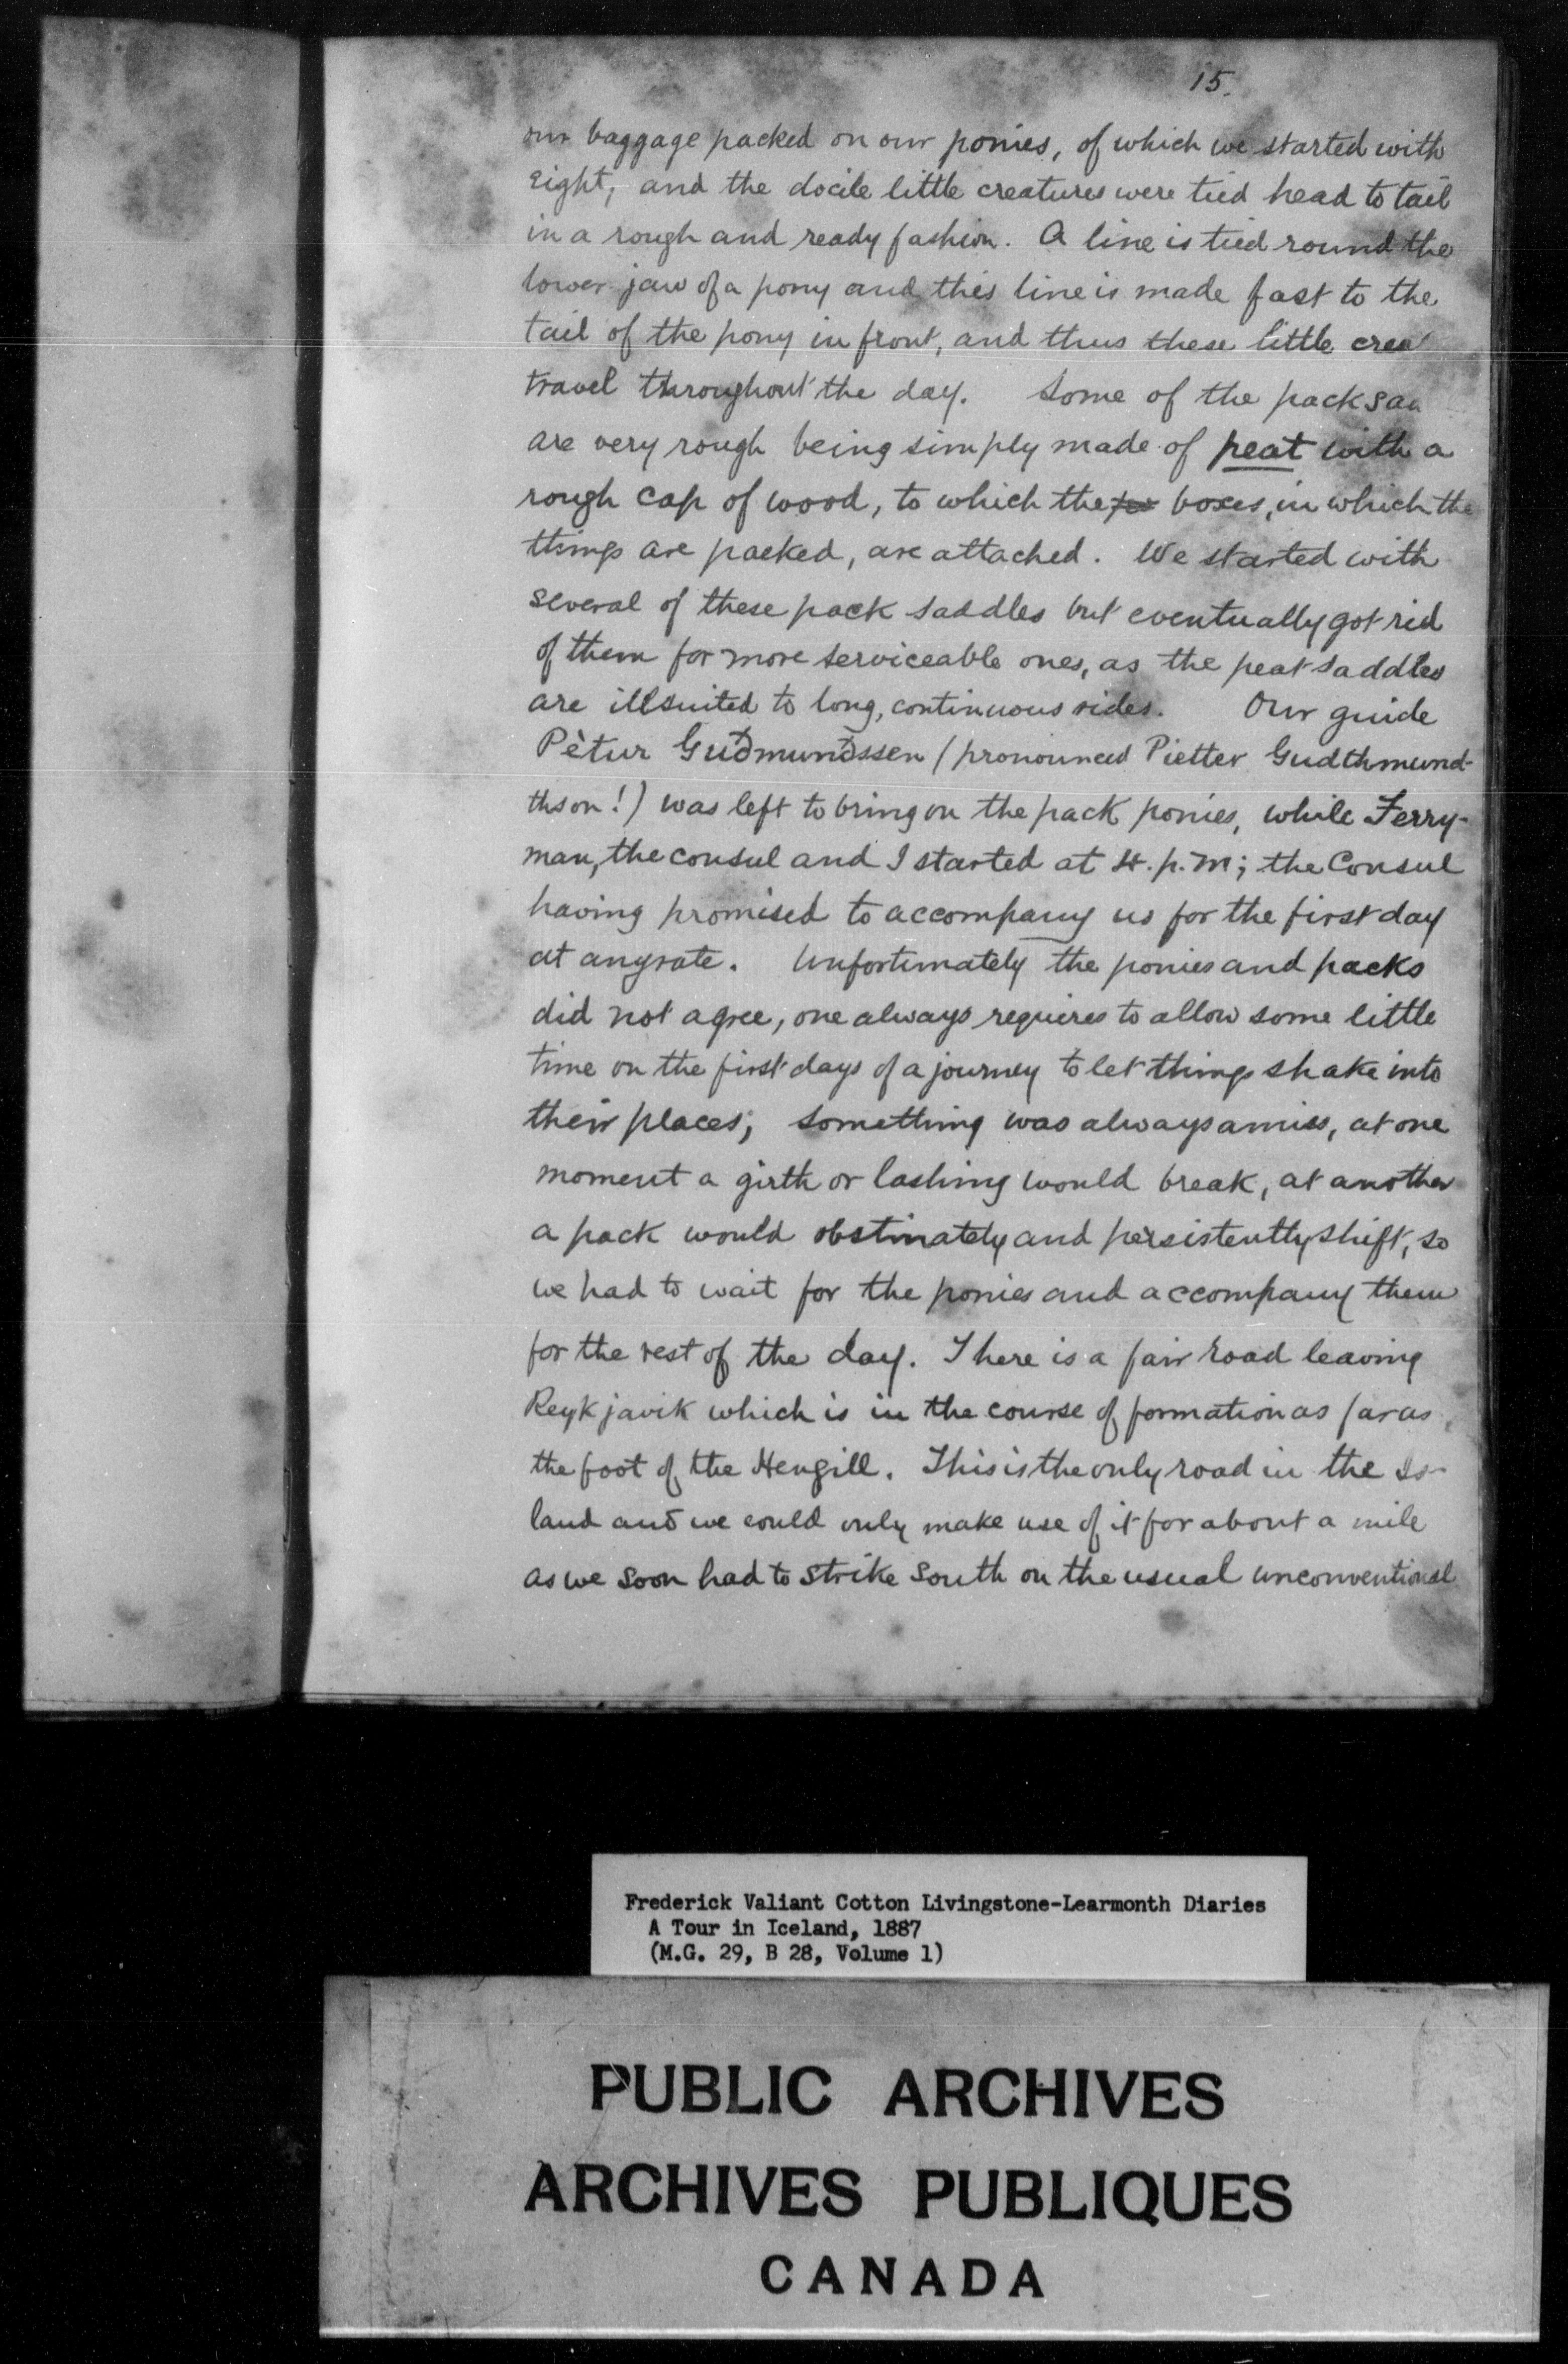 15.
our baggage packed on our ponies, of which we started with
eight, and the docile little creatures were tied head to tail
in a rough and ready fashion. A line is tied round the
lower jaw of a pony and this line is made fast to the
tail of the pony in front, and thus these little crea
travel throughout the day. Some of the pack sad
are very rough being simply made of peat with a
rough cap of wood, to which the boxes, in which the
things are packed, are attached. We started with
several of these pack saddles but eventually got rid
of them for more serviceable ones, as the peat saddles
are illsuited to long, continuous rides. Our guide
Pètur Guðmundssen (pronounced Pietter Gudthmund-
thson!) was left to bring on the pack ponies, while Ferry-
man, the consul and I started at 4. p.m; the Consul
having promised to accompany us for the first day
at anyrate. Unfortunately the ponies and packs
did not agree, one always requires to allow some little
time on the first days of a journey to let things shake into
their places; something was always amiss, at one
moment a girth or lashing would break, at another
a pack would obstinately and persistently shift, so
we had to wait for the ponies and accompany them
for the rest of the day. There is a fair road leaving
Reykjavik which is in the course of formation as far as
the foot of the Hengill. This is the only road in the is-
land and we could only make use of it for about a mile
as we soon had to strike South on the usual unconventional
Frederick Valiant Cotton Livingstone-Learmonth Diaries
A Tour in Iceland, 1887
(M.G. 29, B 28, Volume 1)
PUBLIC ARCHIVES
ARCHIVES PUBLIQUES
CANADA